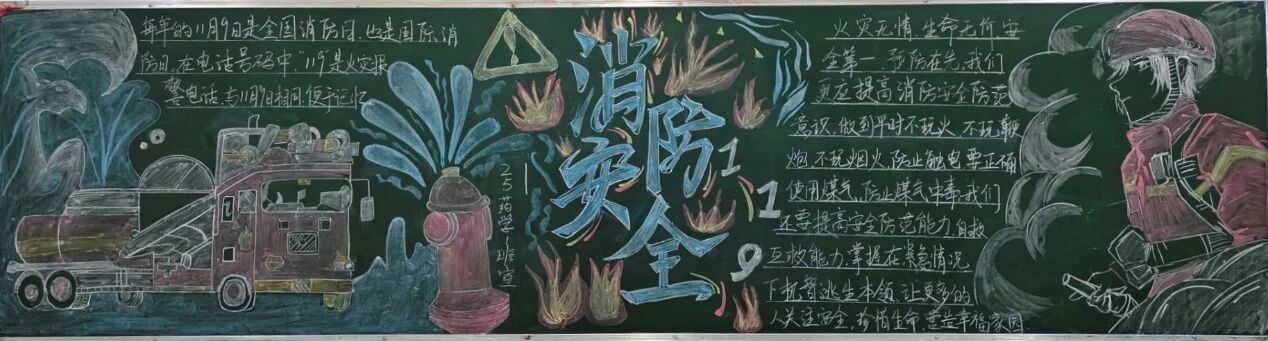 每年的11月9日是全国消防日,也是国际消
防日,在电话号码中,"119"是火灾报
警电话,与11月9日相同,便于记忆
消防
安全
119
25药学1班宣
火灾无情,生命无价,安
全第一,预防在先,我们
更应提高消防安全防范
意识,做到平时不玩火,不玩鞭
炮,不玩烟火,防止触电,要正确
使用煤气,防止煤气中毒,我们
还要提高安全防范能力,自救
互救能力,掌握在紧急情况
下机智逃生本领,让更多的
人关注安全,珍惜生命,营造幸福家园.